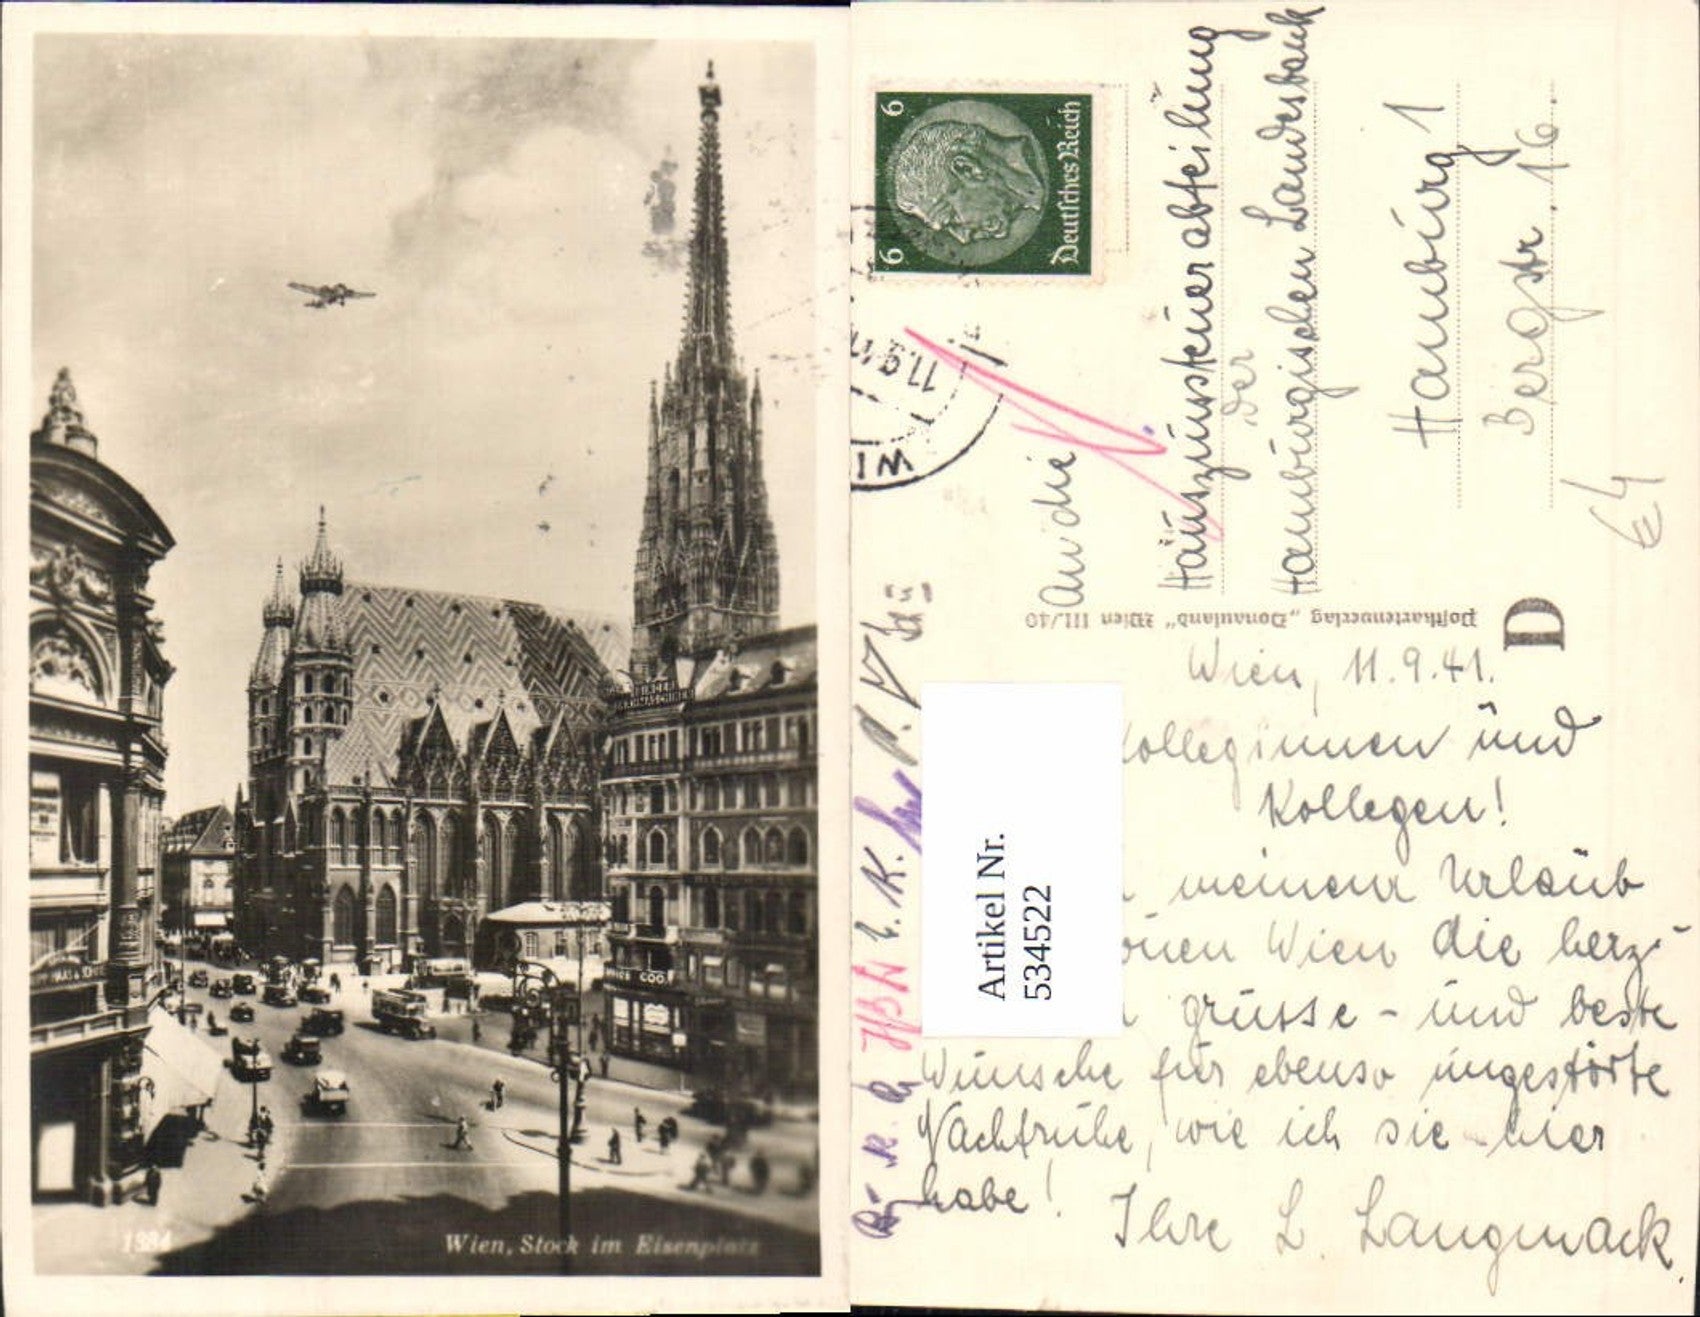 1984
Wien, Stock im Eisenplatz
COOK
6
6
Deutsches Reich
WI
11.9.41
An die
Hauszinssteuerabteilung
der
Hamburgischen Landesbank
Hamburg 1
Bergstr. 16.
€4
Postkartenverlag „Donauland“ Wien III/40
D
Artikel Nr.
534522
Wien, 11.9.41.
Kolleginnen und
Kollegen!
meinem Urlaub
önen Wien die herz-
grüsse - und beste
Wünsche für ebenso ungestörte
Nachtruhe, wie ich sie hier
habe!
Ihre L. Langmack.